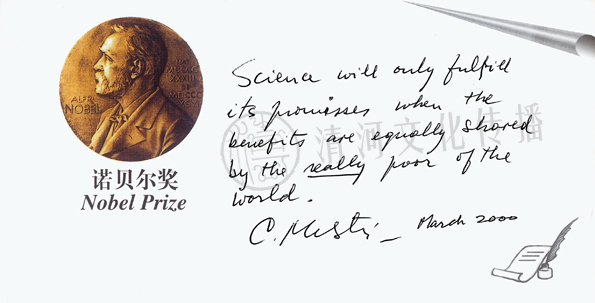 ALFR.
NOBEL
诺贝尔奖
Nobel Prize
Science will only fulfill
its promisses when the
benefits are equally shared
by the really poor of the
world.
March 2000
清河文化传播